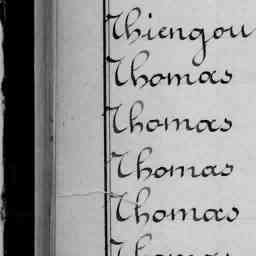 Thiengou
Thomas
Thomas
Thomas
Thomas
Thomas